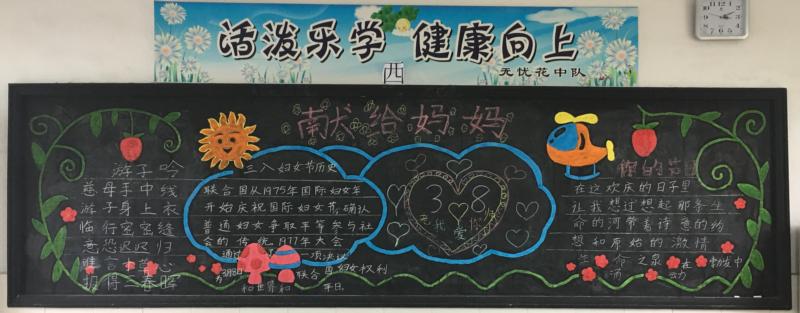 活泼乐学 健康向上
无忧花中队
西
献给妈妈
游子吟
慈母手中线
游子身上衣
临行密密缝
意恐迟迟归
谁言寸草心
报得三春晖
三八妇女节历史
联合国从1975年国际妇女年
开始庆祝国际妇女节,确认
普通妇女争取平等参与社
会的传统1977年大会
通过 一项决议
联合国妇女权利
和世界和 平日.
3 8
无我爱
你的节日
在这欢庆的日子里
让我想过想起那条生
命的河带着诗意的约
想和原始的激情
生命之泉在 勃发中
涌动